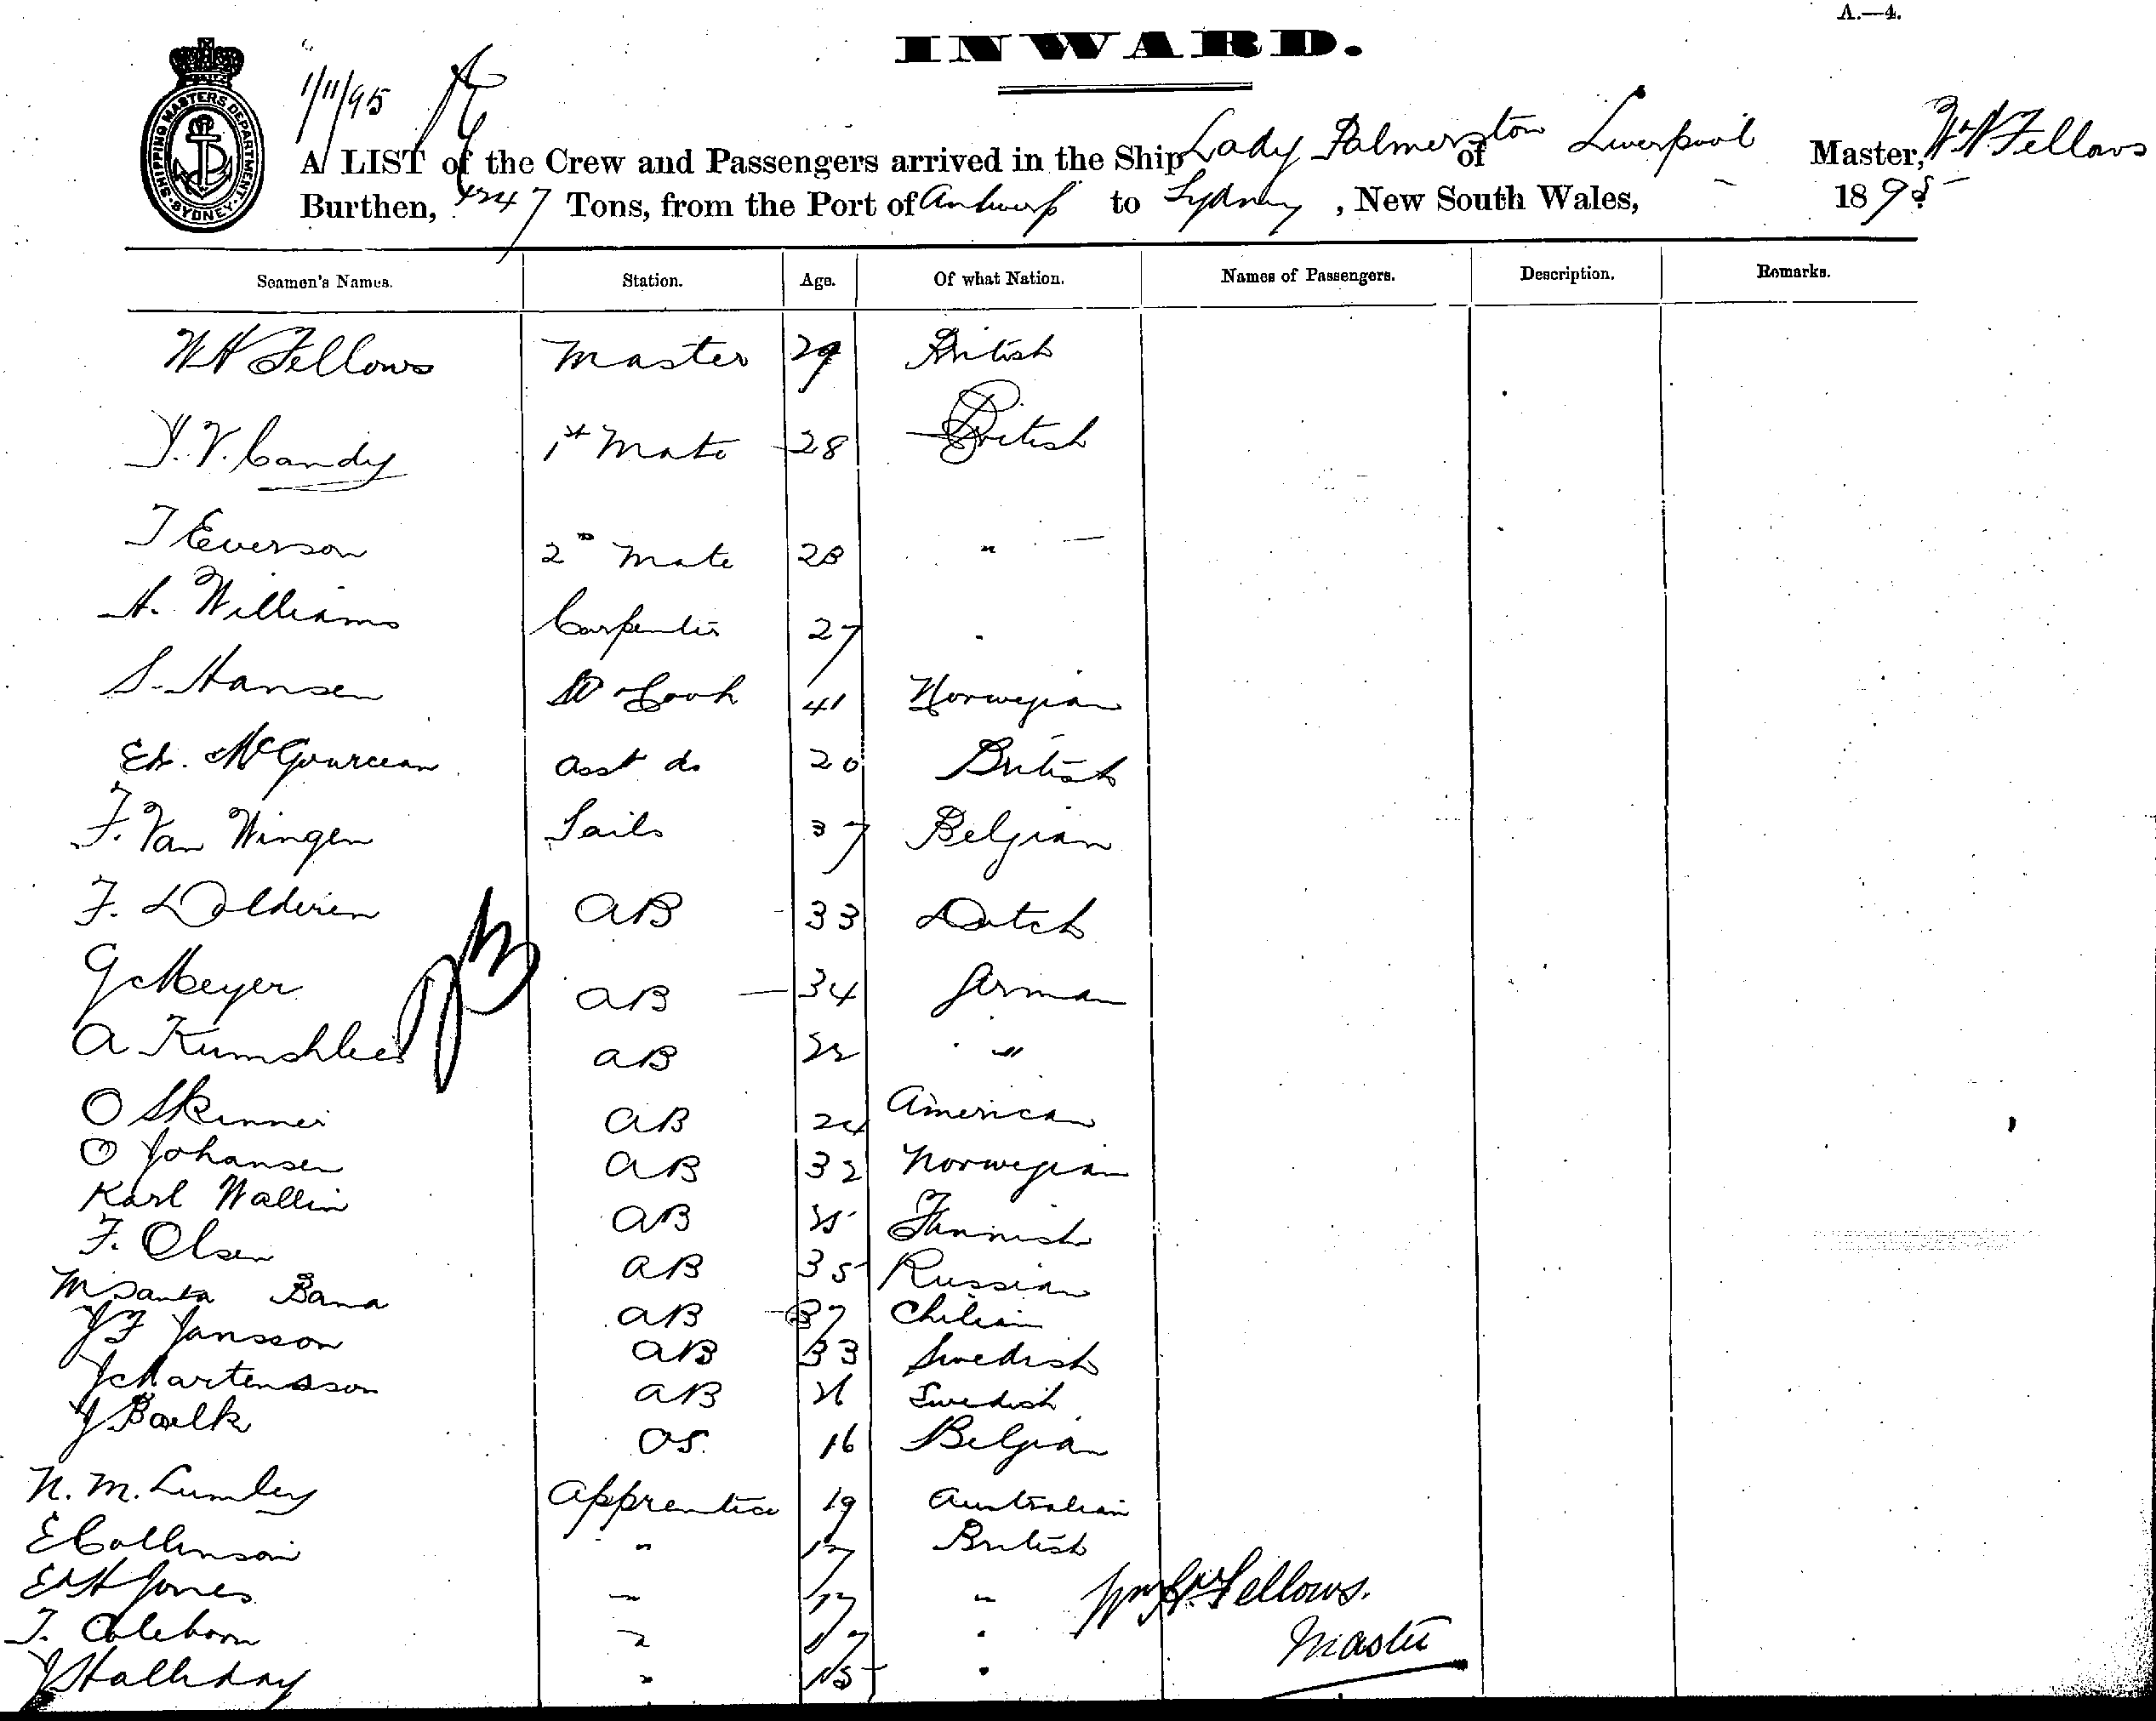 A.—4.
INWARD.
SHIPPING MASTERS DEPARTMENT SYDNEY
1/11/95
A LIST of the Crew and Passengers arrived in the Ship Lady Palmerston of Liverpool Master, W H Fellows
Burthen, Tons, from the Port of Antwerp to Sydney, New South Wales, 1895
Seamen's Names. Station. Age. Of what Nation. Names of Passengers. Description. Remarks.
W H Fellows Master 29 British
J. V. Candy 1st Mate 28 British
T Everson 2nd Mate 28 "
A. Williams Carpenter 27 "
S. Hansen Cook 41 Norwegian
Ed. asst do 20 British
F. Van Wingen Sails 37 Belgian
F. Dolderen AB 33 Dutch
G Meyer AB 34 German
A AB 22 "
O Skinner AB 24 American
O Johansen AB 32 Norwegian
Karl Wallin AB 25 Finnish
F. Olsen AB 35 Russian
M Santa Bama AB 37 Chilian
J F Jansson AB 33 Swedish
J Martensson AB 21 Swedish
J Baulk OS. 16 Belgian
N. M. Lumley Apprentice 19 Australian
E Collinson " 17 British
E H Jones " 17 "
T. Coleborn " 17 "
J Halliday " 15 "
Wm H. Fellows.
Master